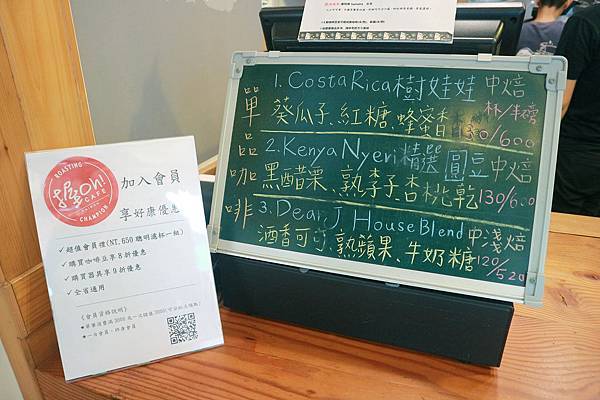 單品咖啡
1. Costa Rica 樹娃娃 中焙
杯/半磅
葵瓜子、紅糖、蜂蜜香
0/600
2. Kenya Nyeri 精選 圓豆 中焙
黑醋栗、熟李子、杏桃乾 130/600
3. Dear J House Blend 中淺焙
酒香可可、熟蘋果、牛奶糖 120/520
ROASTING
Oh!
CAFE
CHAMPION
加入會員
享好康優惠
✓超值會員禮(NT.650聰明濾杯一組)
✓購買咖啡豆享8折優惠
✓購買器具享9折優惠
✓全省通用
《會員資格說明》
★一日會員，終身會員